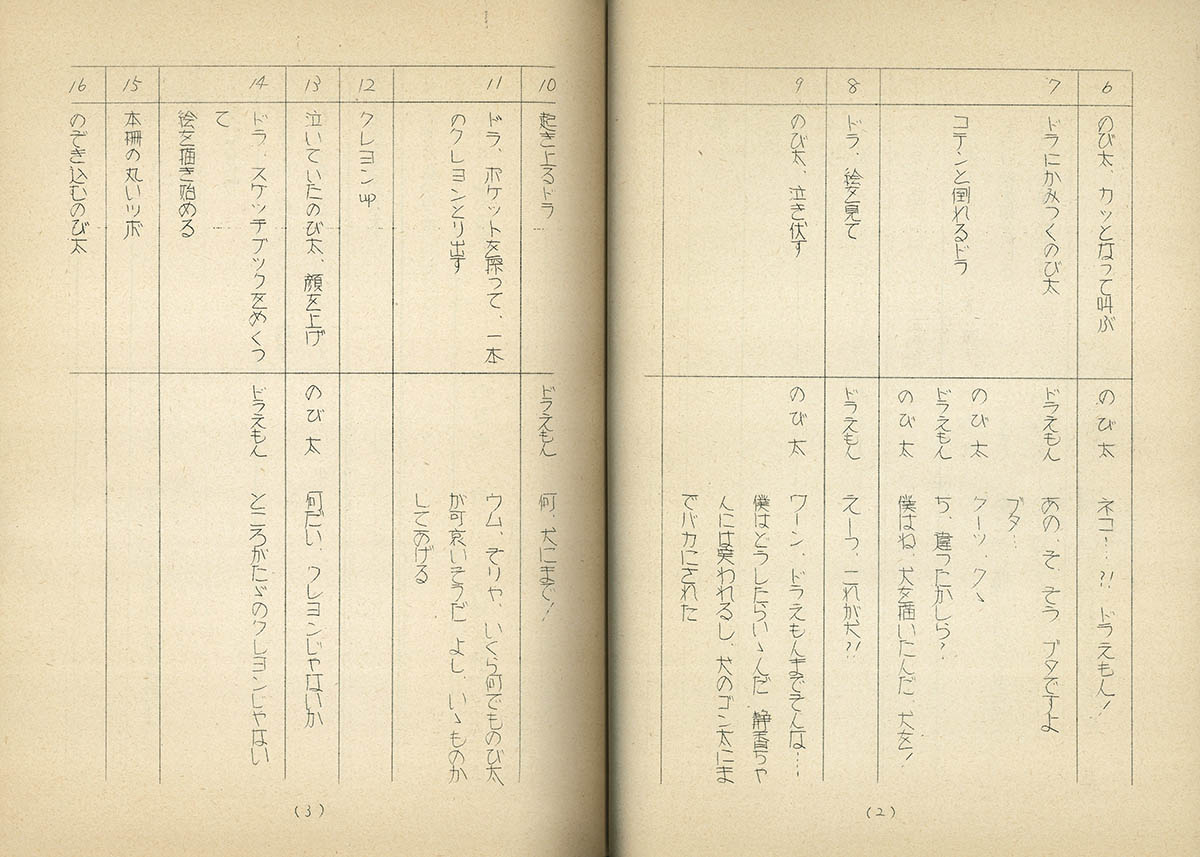 6
のび太、カッとなって叫ぶ
のび太
ネコ…?!　ドラえもん!
7
ドラにかみつくのび太
コテンと倒れるドラ
ドラえもん
あの、そ、そう　ブタですよ
ブタ…
のび太
クーッ、クゝ
ドラえもん
ち、違ったかしら?
のび太
僕はね、犬を描いたんだ、犬を!
8
ドラ、絵を見て
ドラえもん
えーっ、これが犬?!
9
のび太、泣き伏す
のび太
ワーン、ドラえもんまでそんな……
僕はどうしたらいゝんだ　静香ちゃ
んには笑われるし、犬のゴン太にま
でバカにされた
(2)
10
起き上るドラ
ドラえもん
何、犬にまで!
11
ドラ、ポケットを探って、一本
のクレヨンとり出す
ウム、そりゃ、いくら何でものび太
が可哀いそうだ　よし、いゝものか
してあげる
12
クレヨンup
13
泣いていたのび太、顔を上げ
のび太
何だい、クレヨンじゃないか
14
ドラ、スケッチブックをめくっ
て
絵を描き始める
ドラえもん
ところがたゞのクレヨンじゃない
15
本冊の丸いツボ
16
のぞき込むのび太
(3)